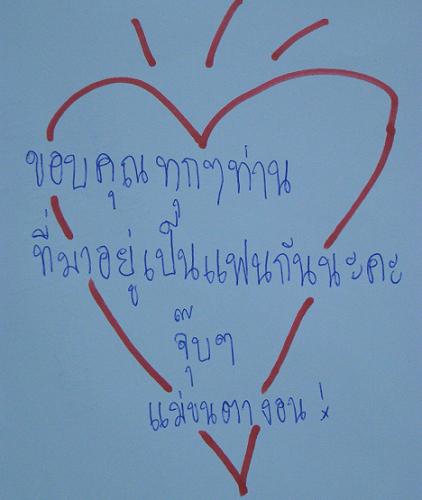 ขอบคุณทุกๆท่าน
ที่มาอยู่เป็นแฟนกันนะคะ
จุ๊บๆ
แม่ขนตางอน